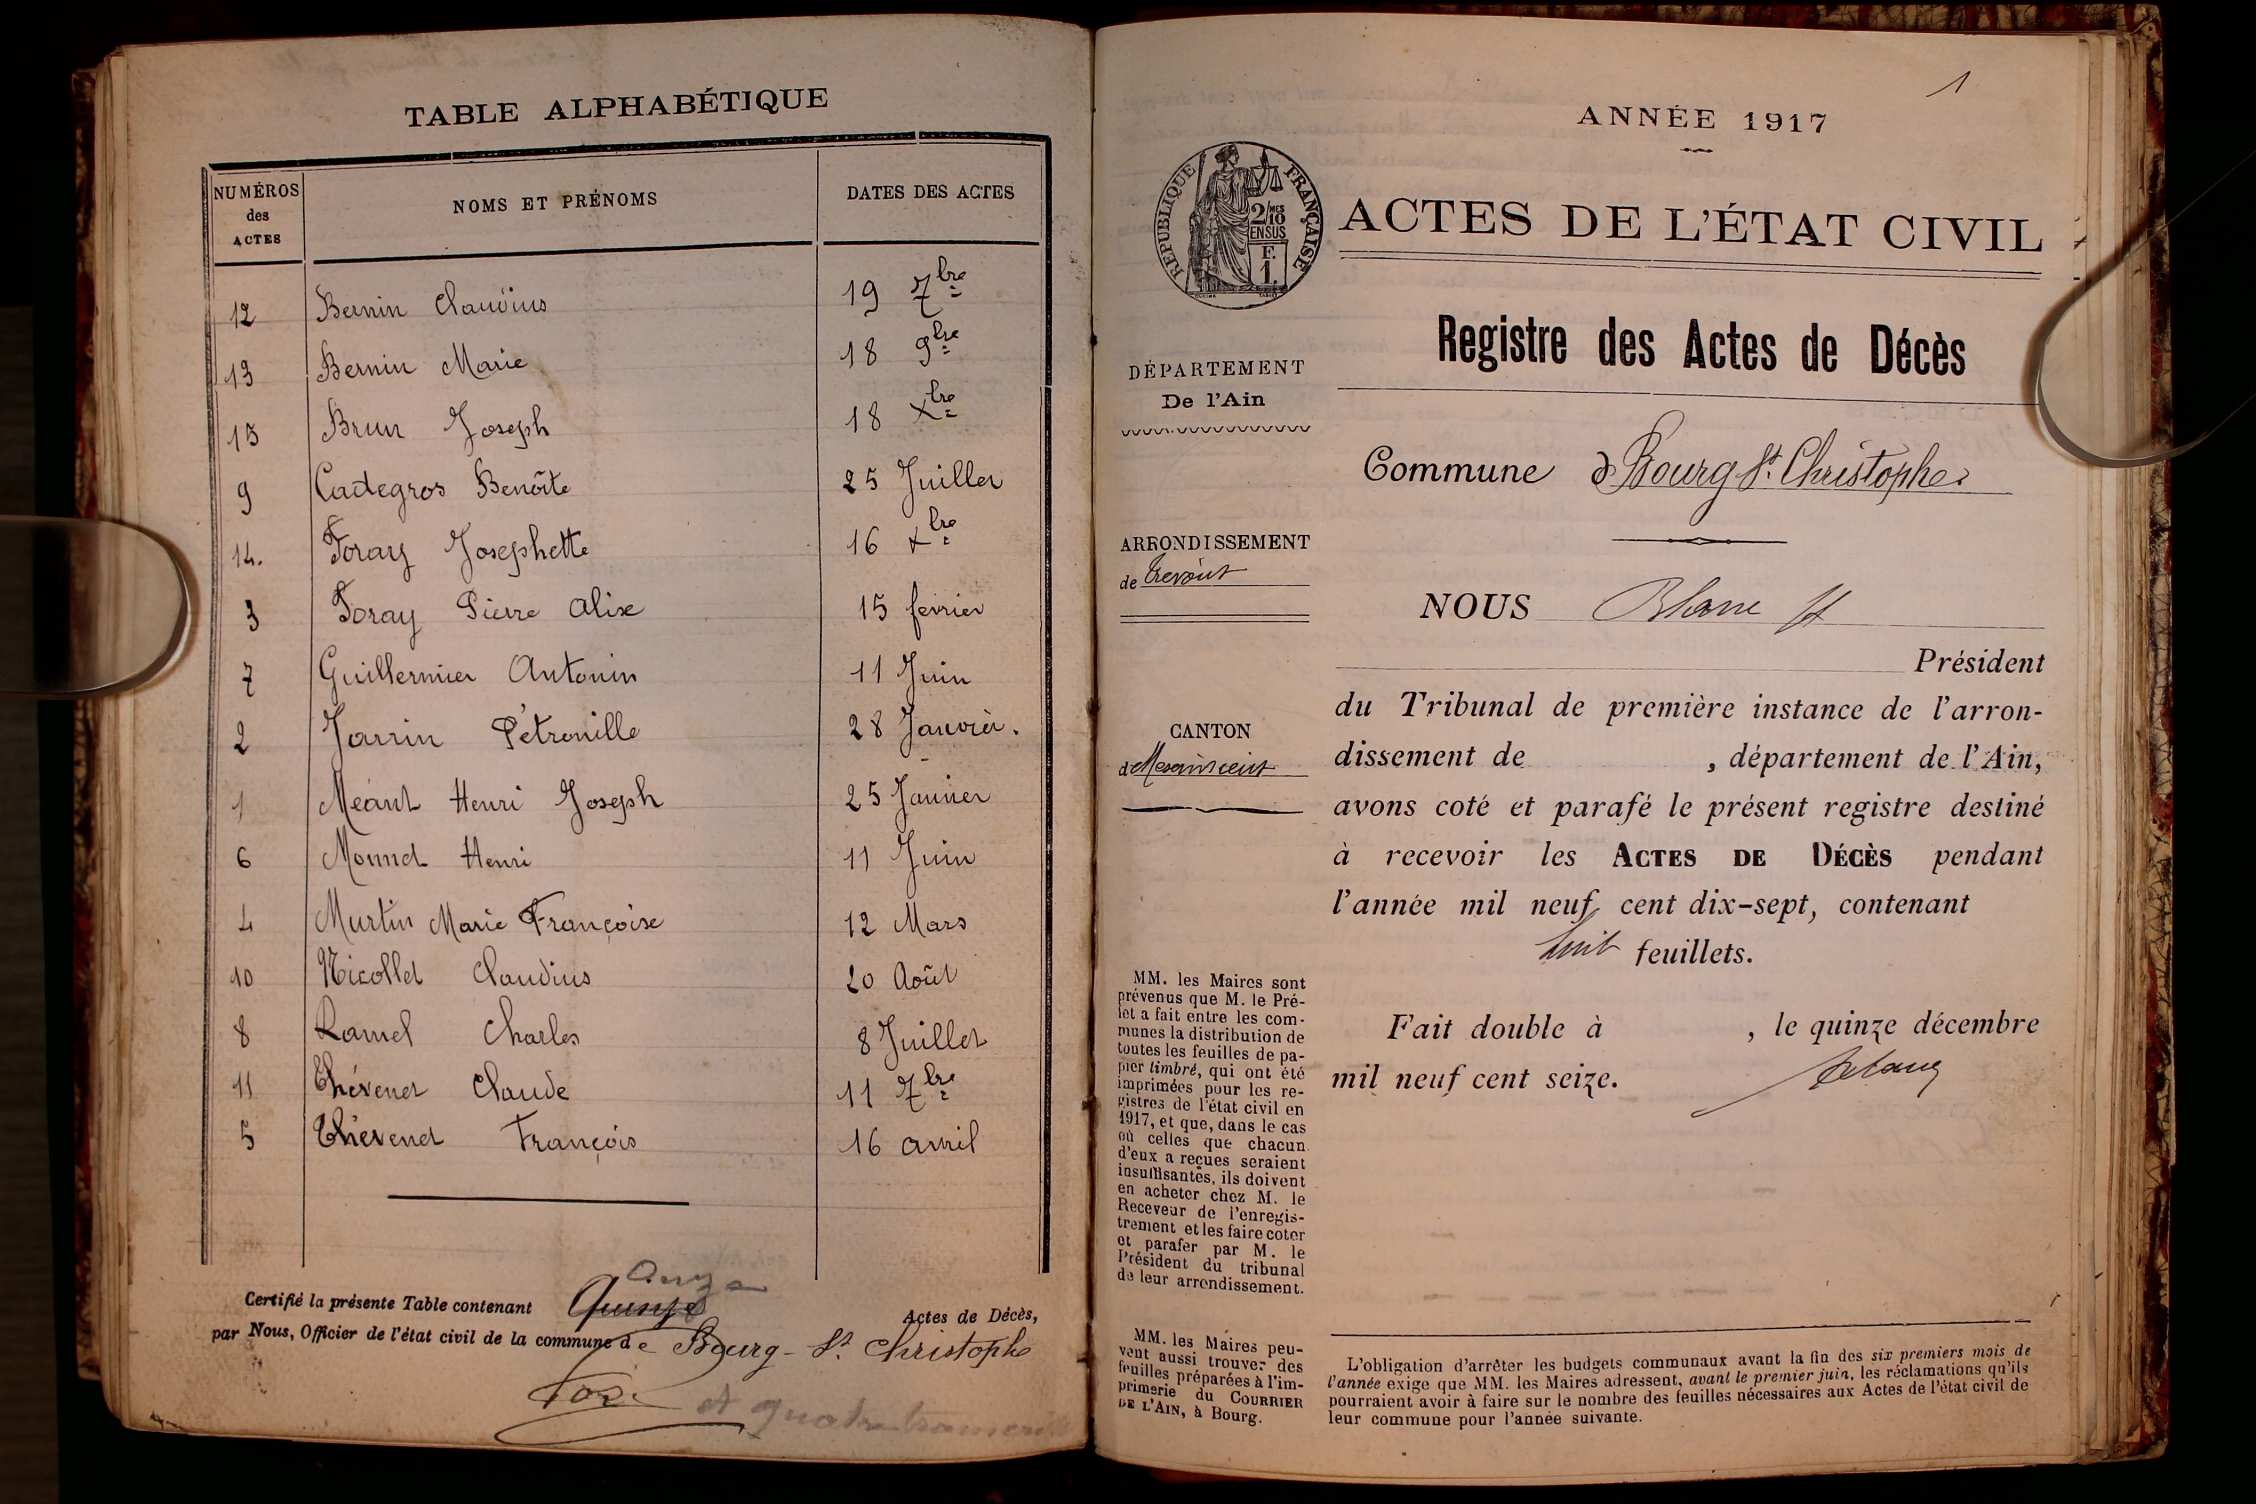 TABLE ALPHABÉTIQUE
NUMÉROS des ACTES NOMS ET PRÉNOMS DATES DES ACTES
12 Bernin Claudius 19 7bre
13 Bernin Marie 18 9bre
15 Brun Joseph 18 Xbre
9 Cadegros Benoîte 25 Juillet
14. Foray Josephette 16 Xbre
3 Foray Pierre Alix 15 février
7 Guillermier Antonin 11 Juin
2 Jarrin Pétronille 28 Janvier.
1 Méant Henri Joseph 25 Janvier
6 Monnet Henri 11 Juin
4 Murtin Marie Françoise 12 Mars
10 Nicollet Claudius 20 Août
8 Ramel Charles 8 Juillet
11 Thévenet Claude 11 7bre
5 Thévenet François 16 avril
Onze
Certifié la présente Table contenant Quinze Actes de Décès,
par Nous, Officier de l'état civil de la commune de Bourg-St. Christophe
et quatre
1
ANNÉE 1917
RÉPUBLIQUE FRANÇAISE
2/10 MES
EN SUS
F.
1.
ACTES DE L'ÉTAT CIVIL
Registre des Actes de Décès
DÉPARTEMENT
De l'Ain
Commune d Bourg St. Christophe
ARRONDISSEMENT
de Trévoux
NOUS
Président
du Tribunal de première instance de l'arron-
dissement de , département de l'Ain,
avons coté et parafé le présent registre destiné
à recevoir les ACTES DE DÉCÈS pendant
l'année mil neuf cent dix-sept, contenant
huit feuillets.
Fait double à , le quinze décembre
mil neuf cent seize.
CANTON
d Meximieux
MM. les Maires sont
prévenus que M. le Pré-
fet a fait entre les com-
munes la distribution de
toutes les feuilles de pa-
pier timbré, qui ont été
imprimées pour les re-
gistres de l'état civil en
1917, et que, dans le cas
où celles que chacun
d'eux a reçues seraient
insuffisantes, ils doivent
en acheter chez M. le
Receveur de l'enregis-
trement et les faire coter
et parafer par M. le
Président du tribunal
de leur arrondissement.
MM. les Maires peu-
vent aussi trouver des
feuilles préparées à l'im-
primerie du COURRIER
DE L'AIN, à Bourg.
L'obligation d'arrêter les budgets communaux avant la fin des six premiers mois de
l'année exige que MM. les Maires adressent, avant le premier juin, les réclamations qu'ils
pourraient avoir à faire sur le nombre des feuilles nécessaires aux Actes de l'état civil de
leur commune pour l'année suivante.